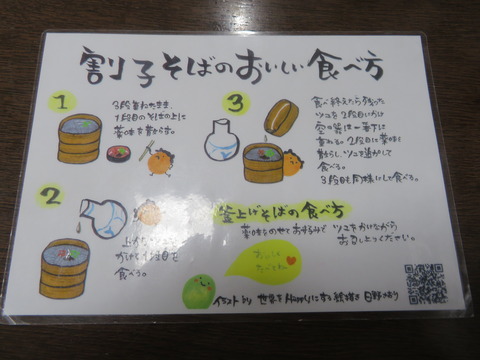 割子そばのおいしい食べ方
1
3段重ねたまま、
1段目のそばの上に
薬味を散らす。
2
上からツユを
かけて1段目を
食べる。
3
食べ終えたら残った
ツユを2段目にかけ
空の器は一番下に
重ねる。2段目に薬味を
散らし、ツユを適量かけて
食べる。
3段目も同様にして食べる。
釜上げそばの食べ方
薬味をのせてお好みで ツユをかけながら
お召し上がりください。
イラスト by 世界をHappyにする